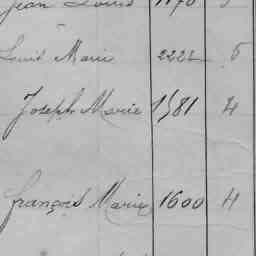 Jean Louis
Louis Marie 2222 5
Joseph Marie 1581 4
François Marie 1600 4